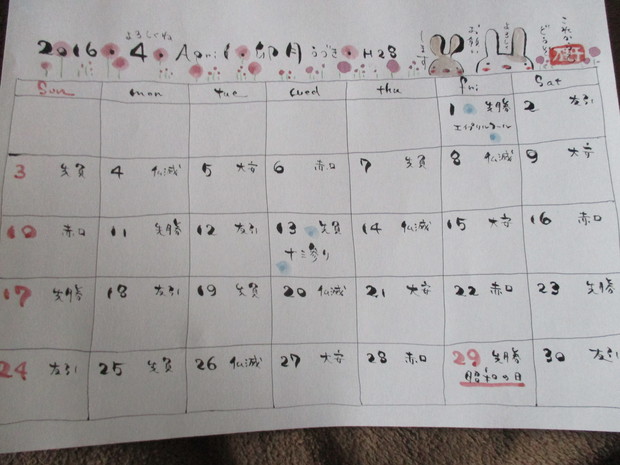 よろしくね
2016・4・April・卯月 うづき・H28
これから
どうぞ
よろしく
お願い
します
Sun mon tue wed thu fri Sat
1 先勝 2 友引
エイプリルフール
3 先負 4 仏滅 5 大安 6 赤口 7 先負 8 仏滅 9 大安
10 赤口 11 先勝 12 友引 13 先負 14 仏滅 15 大安 16 赤口
十三参り
17 先勝 18 友引 19 先負 20 仏滅 21 大安 22 赤口 23 先勝
24 友引 25 先負 26 仏滅 27 大安 28 赤口 29 先勝 30 友引
昭和の日